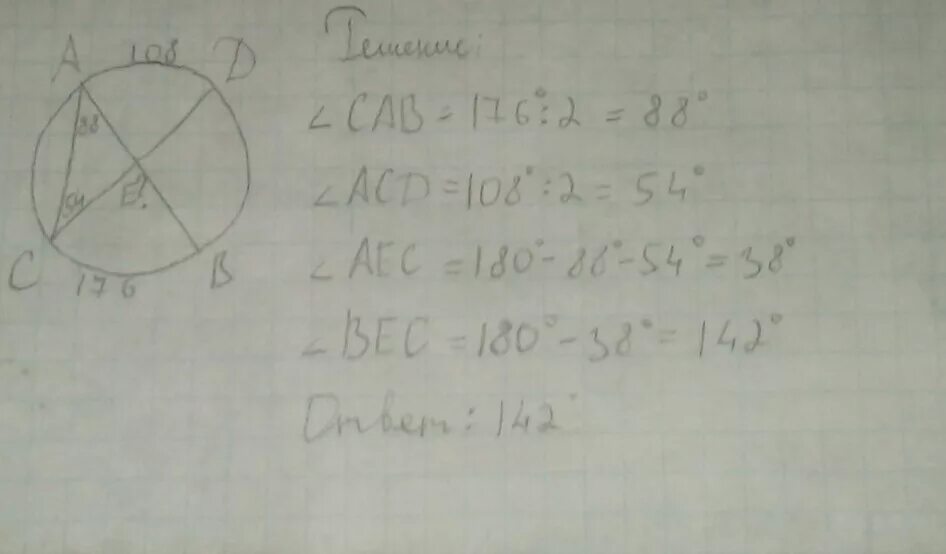 A 108 D
88
54 E?
C 176 B
Решение:
∠CAB = 176° : 2 = 88°
∠ACD = 108° : 2 = 54°
∠AEC = 180° - 88° - 54° = 38°
∠BEC = 180° - 38° = 142°
Ответ: 142°